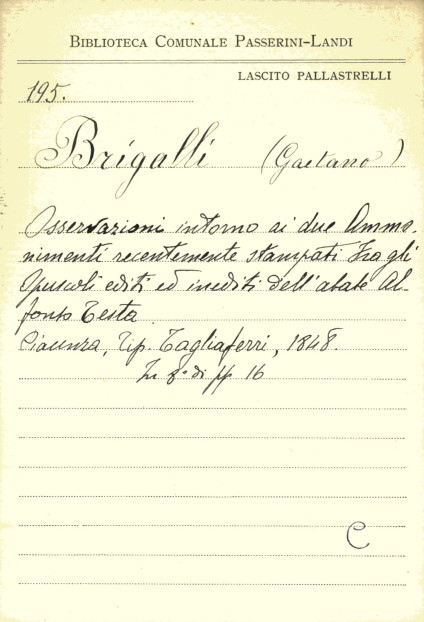 BIBLIOTECA COMUNALE PASSERINI-LANDI
LASCITO PALLASTRELLI
195.
Brigalli (Gaetano)
Osservazioni intorno ai due Ammo-
nimenti recentemente stampati fra gli
Opuscoli editi ed inediti dell'abate Al-
fonso Testa.
Piacenza, Tip. Tagliaferri, 1848.
In 8° di pp 16
C